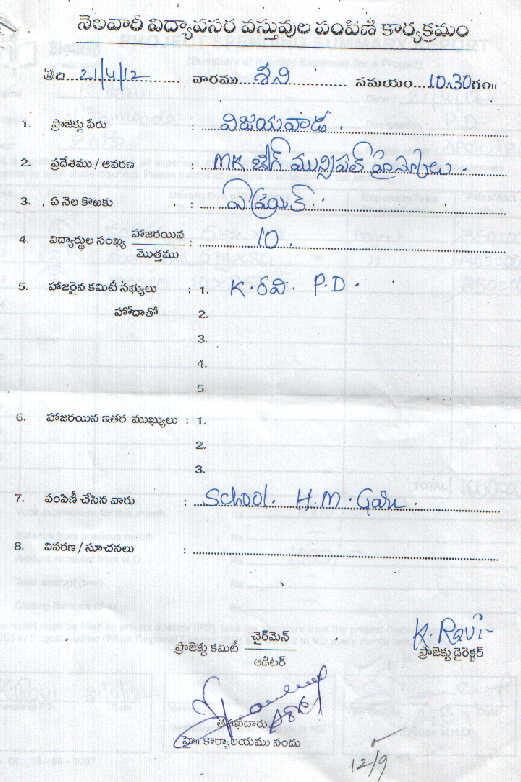 నెలవారీ విద్యావసర వస్తువుల పంపిణీ కార్యక్రమం
తేది 21/4/12 వారము శని సమయం 10.30గం॥
1. ప్రాజెక్టు పేరు : విజయవాడ.
2. ప్రదేశము / ఆవరణ : MK బేగ్ మున్సిపల్ హైస్కూలు.
3. ఏ నెల కొఱకు : ఏప్రియల్.
4. విద్యార్థుల సంఖ్య హాజరయిన : 10.
మొత్తము
5. హాజరైన కమిటీ సభ్యులు : 1. K. రవి. P.D.
హోదాతో 2.
3.
4.
5.
6. హాజరయిన ఇతర ముఖ్యులు : 1.
2.
3.
7. పంపిణీ చేసిన వారు : School. H.M. Garu.
8. వివరణ / సూచనలు :
ప్రాజెక్టు కమిటీ చైర్‌మెన్
ఆడిటర్
K. Ravi
ప్రాజెక్టు డైరెక్టర్
కార్యాలయము నందు
12/9